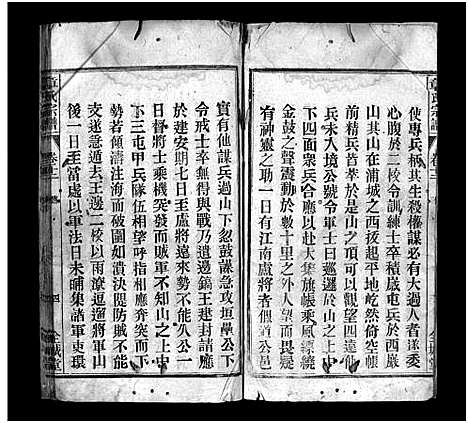 使專兵柄其生殺權謀必有大過人者遂委
心腹於二校令訓練士卒積歲屯兵於西巖
山其山在浦城之西拔起平地屹然倚空帳
前精兵苔萃於是山之上可以觀望四遠他
兵忽入境公號令軍士曰巡邏於山之上中
下四面衆兵合應以赴大集旗幟乘風繚繞
金鼓之聲震動於數十里之外人望而畏疑
有神靈之助一日有江南盧將者引道公邑
實有他謀兵過山下忽鼓譟急攻垣壘公下
令戒士卒無得與戰乃遣邊鎬王建封請應
於建安期七日王盧將遠來勢不能久公一
日將士乘機突發而賊軍不知山之上中
下三屯甲兵隊伍相望呼指相應奔突而下
勢若傾濤注海而破圍如潰決隄防賊不能
支遂急遁去王邊二校以雨潦逗遛將軍山
後一日至當處以軍法日未晡集諸軍吏環
章氏宗譜
卷廿二
全城堂